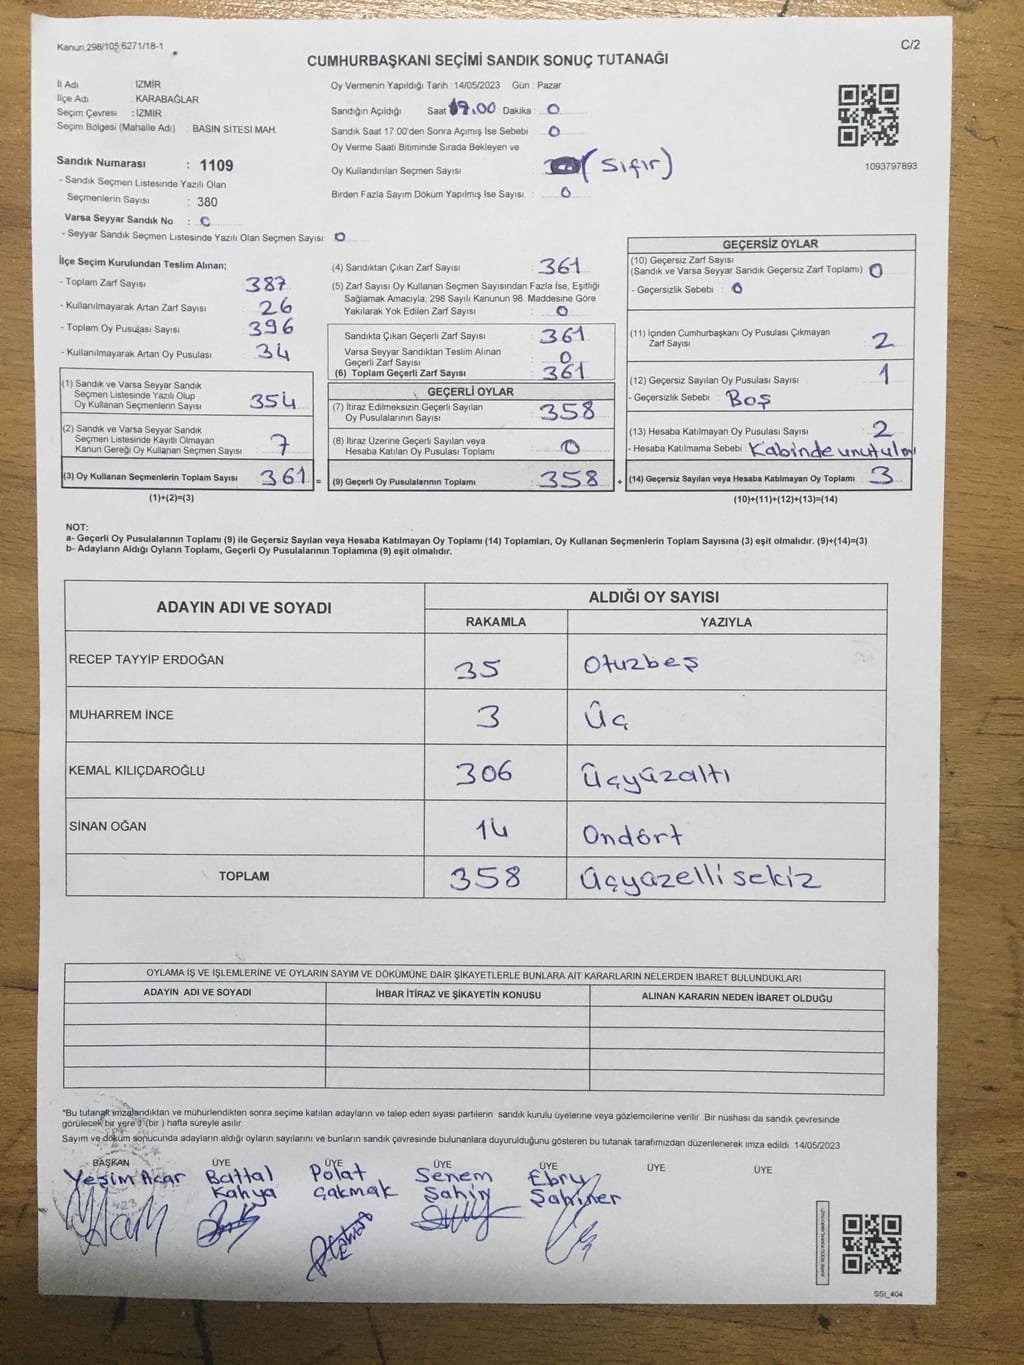 Kanun 298/105 6271/18-1
C/2
CUMHURBAŞKANI SEÇİMİ SANDIK SONUÇ TUTANAĞI
İl Adı : İZMİR
İlçe Adı : KARABAĞLAR
Seçim Çevresi : İZMİR
Seçim Bölgesi (Mahalle Adı) BASIN SİTESİ MAH.
Sandık Numarası : 1109
- Sandık Seçmen Listesinde Yazılı Olan
Seçmenlerin Sayısı : 380
Varsa Seyyar Sandık No : 0
- Seyyar Sandık Seçmen Listesinde Yazılı Olan Seçmen Sayısı: 0
Oy Vermenin Yapıldığı Tarih : 14/05/2023 Gün : Pazar
Sandığın Açıldığı Saat 17.00 Dakika : 0
Sandık Saat 17:00'den Sonra Açımış İse Sebebi : 0
Oy Verme Saati Bitiminde Sırada Bekleyen ve
Oy Kullandırılan Seçmen Sayısı : (Sıfır)
Birden Fazla Sayım Döküm Yapılmış İse Sayısı : 0
1093797893
İlçe Seçim Kurulundan Teslim Alınan;
- Toplam Zarf Sayısı : 387
- Kullanılmayarak Artan Zarf Sayısı : 26
- Toplam Oy Pusulası Sayısı : 396
- Kullanılmayarak Artan Oy Pusulası : 34
(1) Sandık ve Varsa Seyyar Sandık
Seçmen Listesinde Yazılı Olup
Oy Kullanan Seçmenlerin Sayısı : 354
(2) Sandık ve Varsa Seyyar Sandık
Seçmen Listesinde Kayıtlı Olmayan
Kanun Gereği Oy Kullanan Seçmen Sayısı : 7
(3) Oy Kullanan Seçmenlerin Toplam Sayısı : 361 =
(1)+(2)=(3)
(4) Sandıktan Çıkan Zarf Sayısı : 361
(5) Zarf Sayısı Oy Kullanan Seçmen Sayısından Fazla İse, Eşitliği
Sağlamak Amacıyla, 298 Sayılı Kanunun 98. Maddesine Göre
Yakılarak Yok Edilen Zarf Sayısı : 0
Sandıkta Çıkan Geçerli Zarf Sayısı : 361
Varsa Seyyar Sandıktan Teslim Alınan
Geçerli Zarf Sayısı : 0
(6) Toplam Geçerli Zarf Sayısı : 361
GEÇERLİ OYLAR
(7) İtiraz Edilmeksizin Geçerli Sayılan
Oy Pusulalarının Sayısı : 358
(8) İtiraz Üzerine Geçerli Sayılan veya
Hesaba Katılan Oy Pusulası Toplamı : 0
(9) Geçerli Oy Pusulalarının Toplamı : 358 +
GEÇERSİZ OYLAR
(10) Geçersiz Zarf Sayısı
(Sandık ve Varsa Seyyar Sandık Geçersiz Zarf Toplamı) : 0
- Geçersizlik Sebebi : 0
(11) İçinden Cumhurbaşkanı Oy Pusulası Çıkmayan
Zarf Sayısı : 2
(12) Geçersiz Sayılan Oy Pusulası Sayısı : 1
- Geçersizlik Sebebi : Boş
(13) Hesaba Katılmayan Oy Pusulası Sayısı : 2
- Hesaba Katılmama Sebebi : Kabinde
(14) Geçersiz Sayılan veya Hesaba Katılmayan Oy Toplamı : 3
(10)+(11)+(12)+(13)=(14)
NOT:
a- Geçerli Oy Pusulalarının Toplamı (9) ile Geçersiz Sayılan veya Hesaba Katılmayan Oy Toplamı (14) Toplamları, Oy Kullanan Seçmenlerin Toplam Sayısına (3) eşit olmalıdır. (9)+(14)=(3)
b- Adayların Aldığı Oyların Toplamı, Geçerli Oy Pusulalarının Toplamına (9) eşit olmalıdır.
ADAYIN ADI VE SOYADI
ALDIĞI OY SAYISI
RAKAMLA YAZIYLA
RECEP TAYYİP ERDOĞAN 35 Otuzbeş
MUHARREM İNCE 3 Üç
KEMAL KILIÇDAROĞLU 306 Üçyüzaltı
SİNAN OĞAN 14 Ondört
TOPLAM 358 Üçyüzellisekiz
OYLAMA İŞ VE İŞLEMLERİNE VE OYLARIN SAYIM VE DÖKÜMÜNE DAİR ŞİKAYETLERLE BUNLARA AİT KARARLARIN NELERDEN İBARET BULUNDUKLARI
ADAYIN ADI VE SOYADI İHBAR İTİRAZ VE ŞİKAYETİN KONUSU ALINAN KARARIN NEDEN İBARET OLDUĞU
*Bu tutanak imzalandıktan ve mühürlendikten sonra seçime katılan adayların ve talep eden siyasi partilerin sandık kurulu üyelerine veya gözlemcilerine verilir. Bir nüshası da sandık çevresinde
görülecek bir yere 1 (bir) hafta süreyle asılır.
Sayım ve döküm sonucunda adayların aldığı oyların sayılarını ve bunların sandık çevresinde bulunanlara duyurulduğunu gösteren bu tutanak tarafımızdan düzenlenerek imza edildi. 14/05/2023
BAŞKAN ÜYE ÜYE ÜYE ÜYE ÜYE ÜYE
Yeşim Acar Battal Polat Senem Ebru
Kahya Çakmak Şahin Şahiner
SSI_404